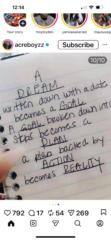 Your story
acreboyzz
Subscribe
10/10
A
DREAM
written down with a date
becomes a GOAL
A GOAL broken down into
steps becomes a
PLAN
a backed by
ACTION
becomes REALITY
792 17 54 269